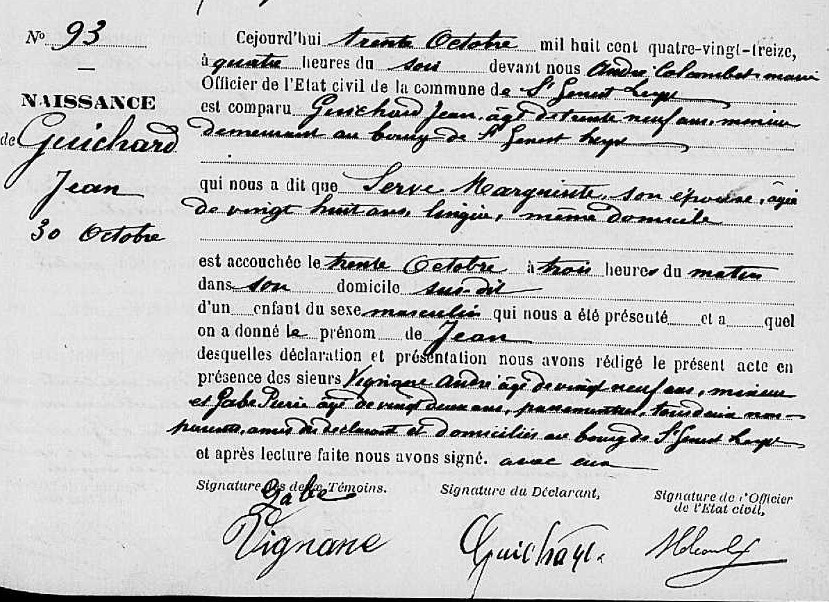 N° 93
NAISSANCE
de Guichard
Jean
30 Octobre
Cejourd'hui trente Octobre mil huit cent quatre-vingt-treize,
à quatre heures du soir devant nous André Colombet, maire
Officier de l'Etat civil de la commune de St Genest Lerpt
est comparu Guichard Jean, âgé de trente neuf ans, mineur
demeurant au bourg de St Genest Lerpt
qui nous a dit que Serve Marguerite, son épouse, âgée
de vingt huit ans, lingère, même domicile
est accouchée le trente Octobre à trois heures du matin
dans son domicile susdit
d'un enfant du sexe masculin qui nous a été présenté et a quel
on a donné le prénom de Jean
desquelles déclaration et présentation nous avons rédigé le présent acte en
présence des sieurs Vignane André âgé de vingt neuf ans, mineur
et Gabe Pierre âgé de vingt deux ans, passementier, tous deux non
parents, amis du déclarant et domiciliés au bourg de St Genest Lerpt
et après lecture faite nous avons signé. avec eux
Signature des deux Témoins.
Signature du Déclarant,
Signature de l'Officier
de l'Etat civil,
Gabe
Vignane
Guichard